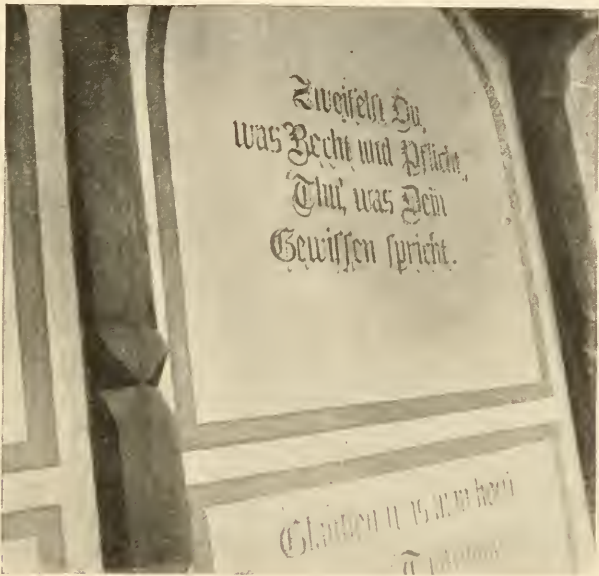 Zweifelst Du,
was Recht und Pflicht,
Thu', was Dein
Gewissen spricht.